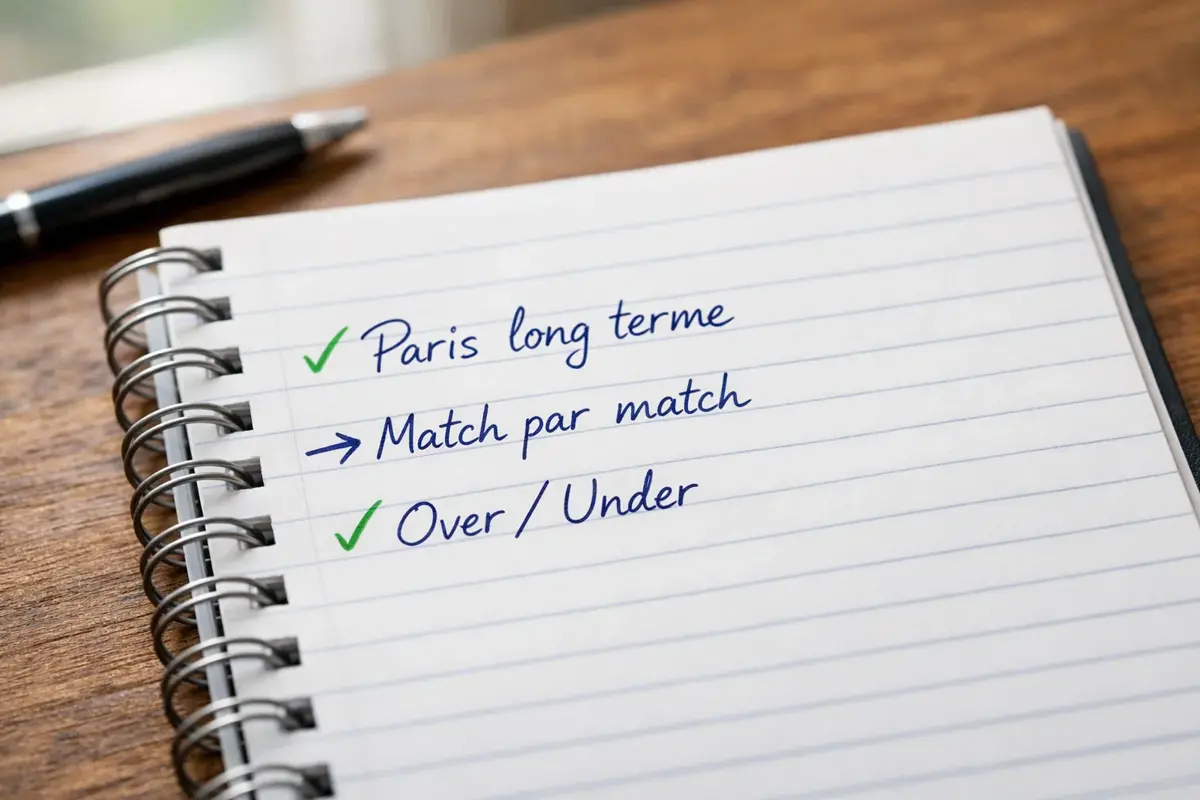 ✓ Paris long terme
→ Match par match
✓ Over / Under